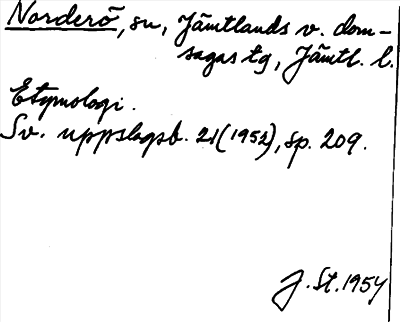 Norderö, sn, Jämtlands v. dom-
sagas tg, Jämtl. l.
Etymologi.
Sv. uppslagsb. 21(1952), sp. 209.
J. St. 1954